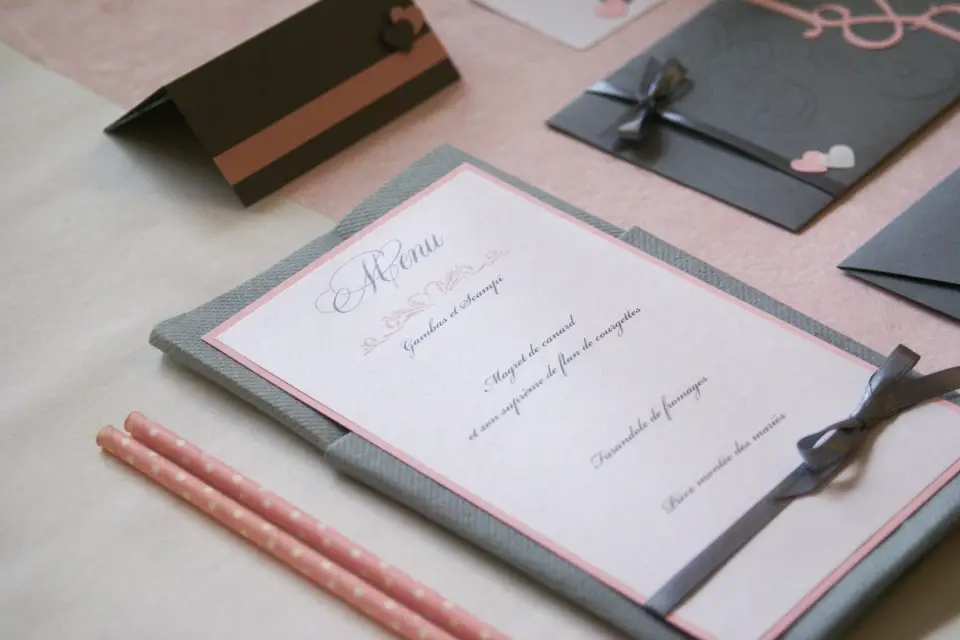 Menu
Gambas et Scampi
Magret de canard
et son suprême de flan de courgettes
Farandole de fromages
Pièce montée des mariés